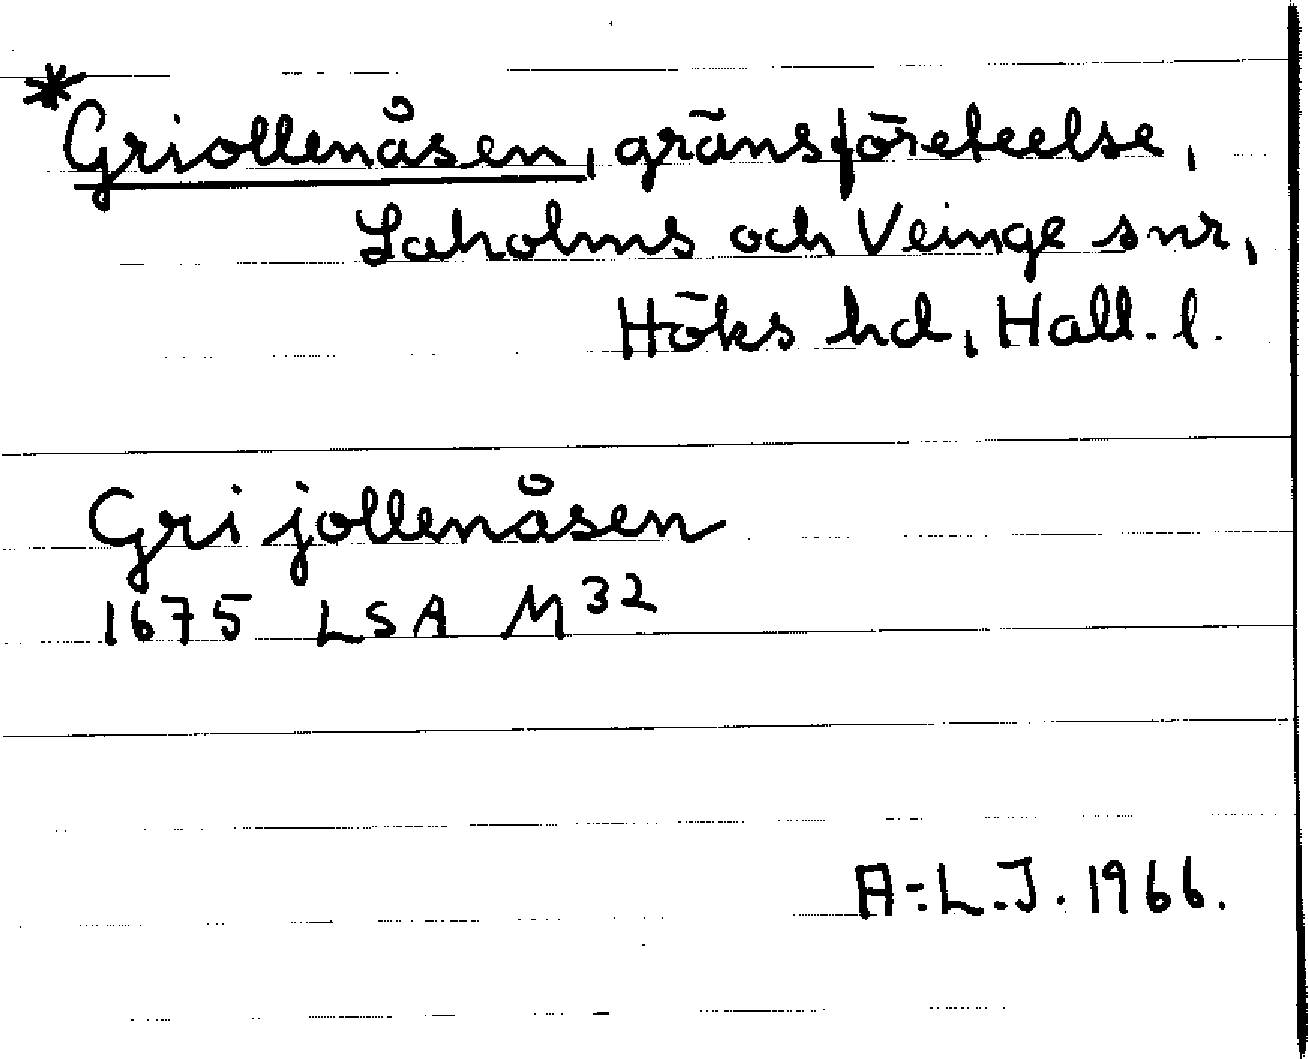 *Griollenåsen, gränsföreteelse,
Laholms och Veinge snr,
Höks hd, Hall. l.
Gri jollenåsen
1675 LSA M32
A-L.J. 1966.